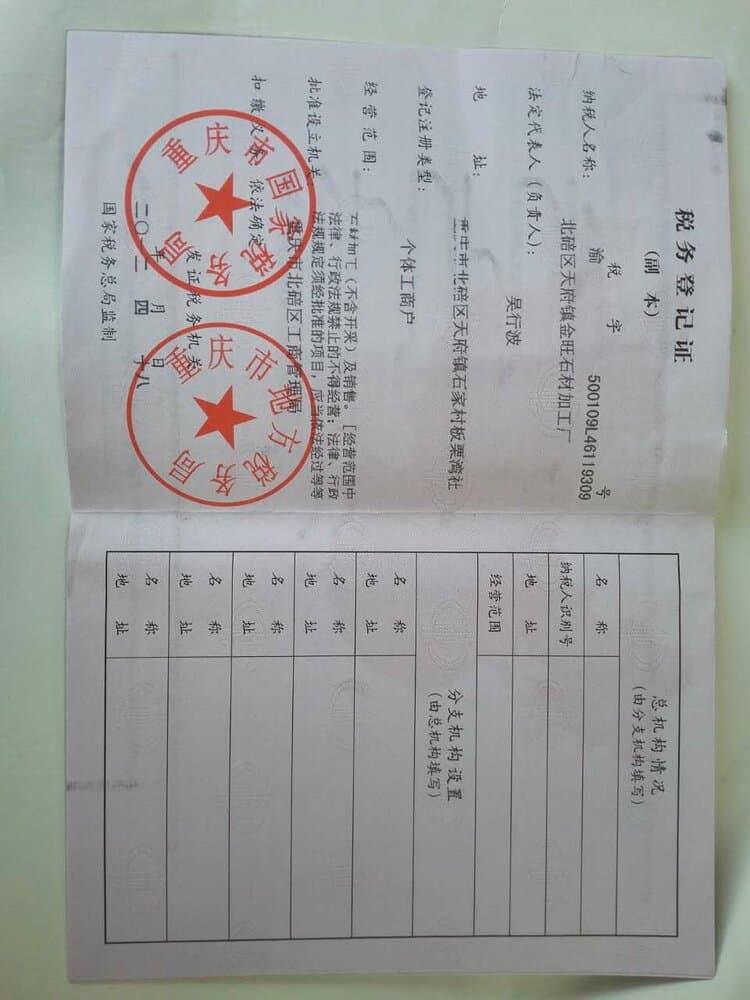 税务登记证
(副 本)
渝 税 字 500109L46119309 号
纳税人名称： 北碚区天府镇金旺石材加工厂
法定代表人（负责人）： 吴行波
地 址： 重庆市北碚区天府镇石家村板栗湾社
登记注册类型： 个体工商户
经 营 范 围： 石材加工（不含开采）及销售。［经营范围中
法律、行政法规禁止的不得经营；法律、行政
法规规定须经批准的项目，应当依法经过等等
批准设立机关： 重庆市北碚区工商管理局
扣 缴 义 务： 依法确定
发证税务机关
二〇一二 年 四 月 十八 日
国家税务总局监制
重庆市国家税务局
重庆市地方税务局
总机构情况
(由分支机构填写)
名 称
纳税人识别号
地 址
经营范围
分支机构设置
(由总机构填写)
名 称
地 址
名 称
地 址
名 称
地 址
名 称
地 址
名 称
地 址